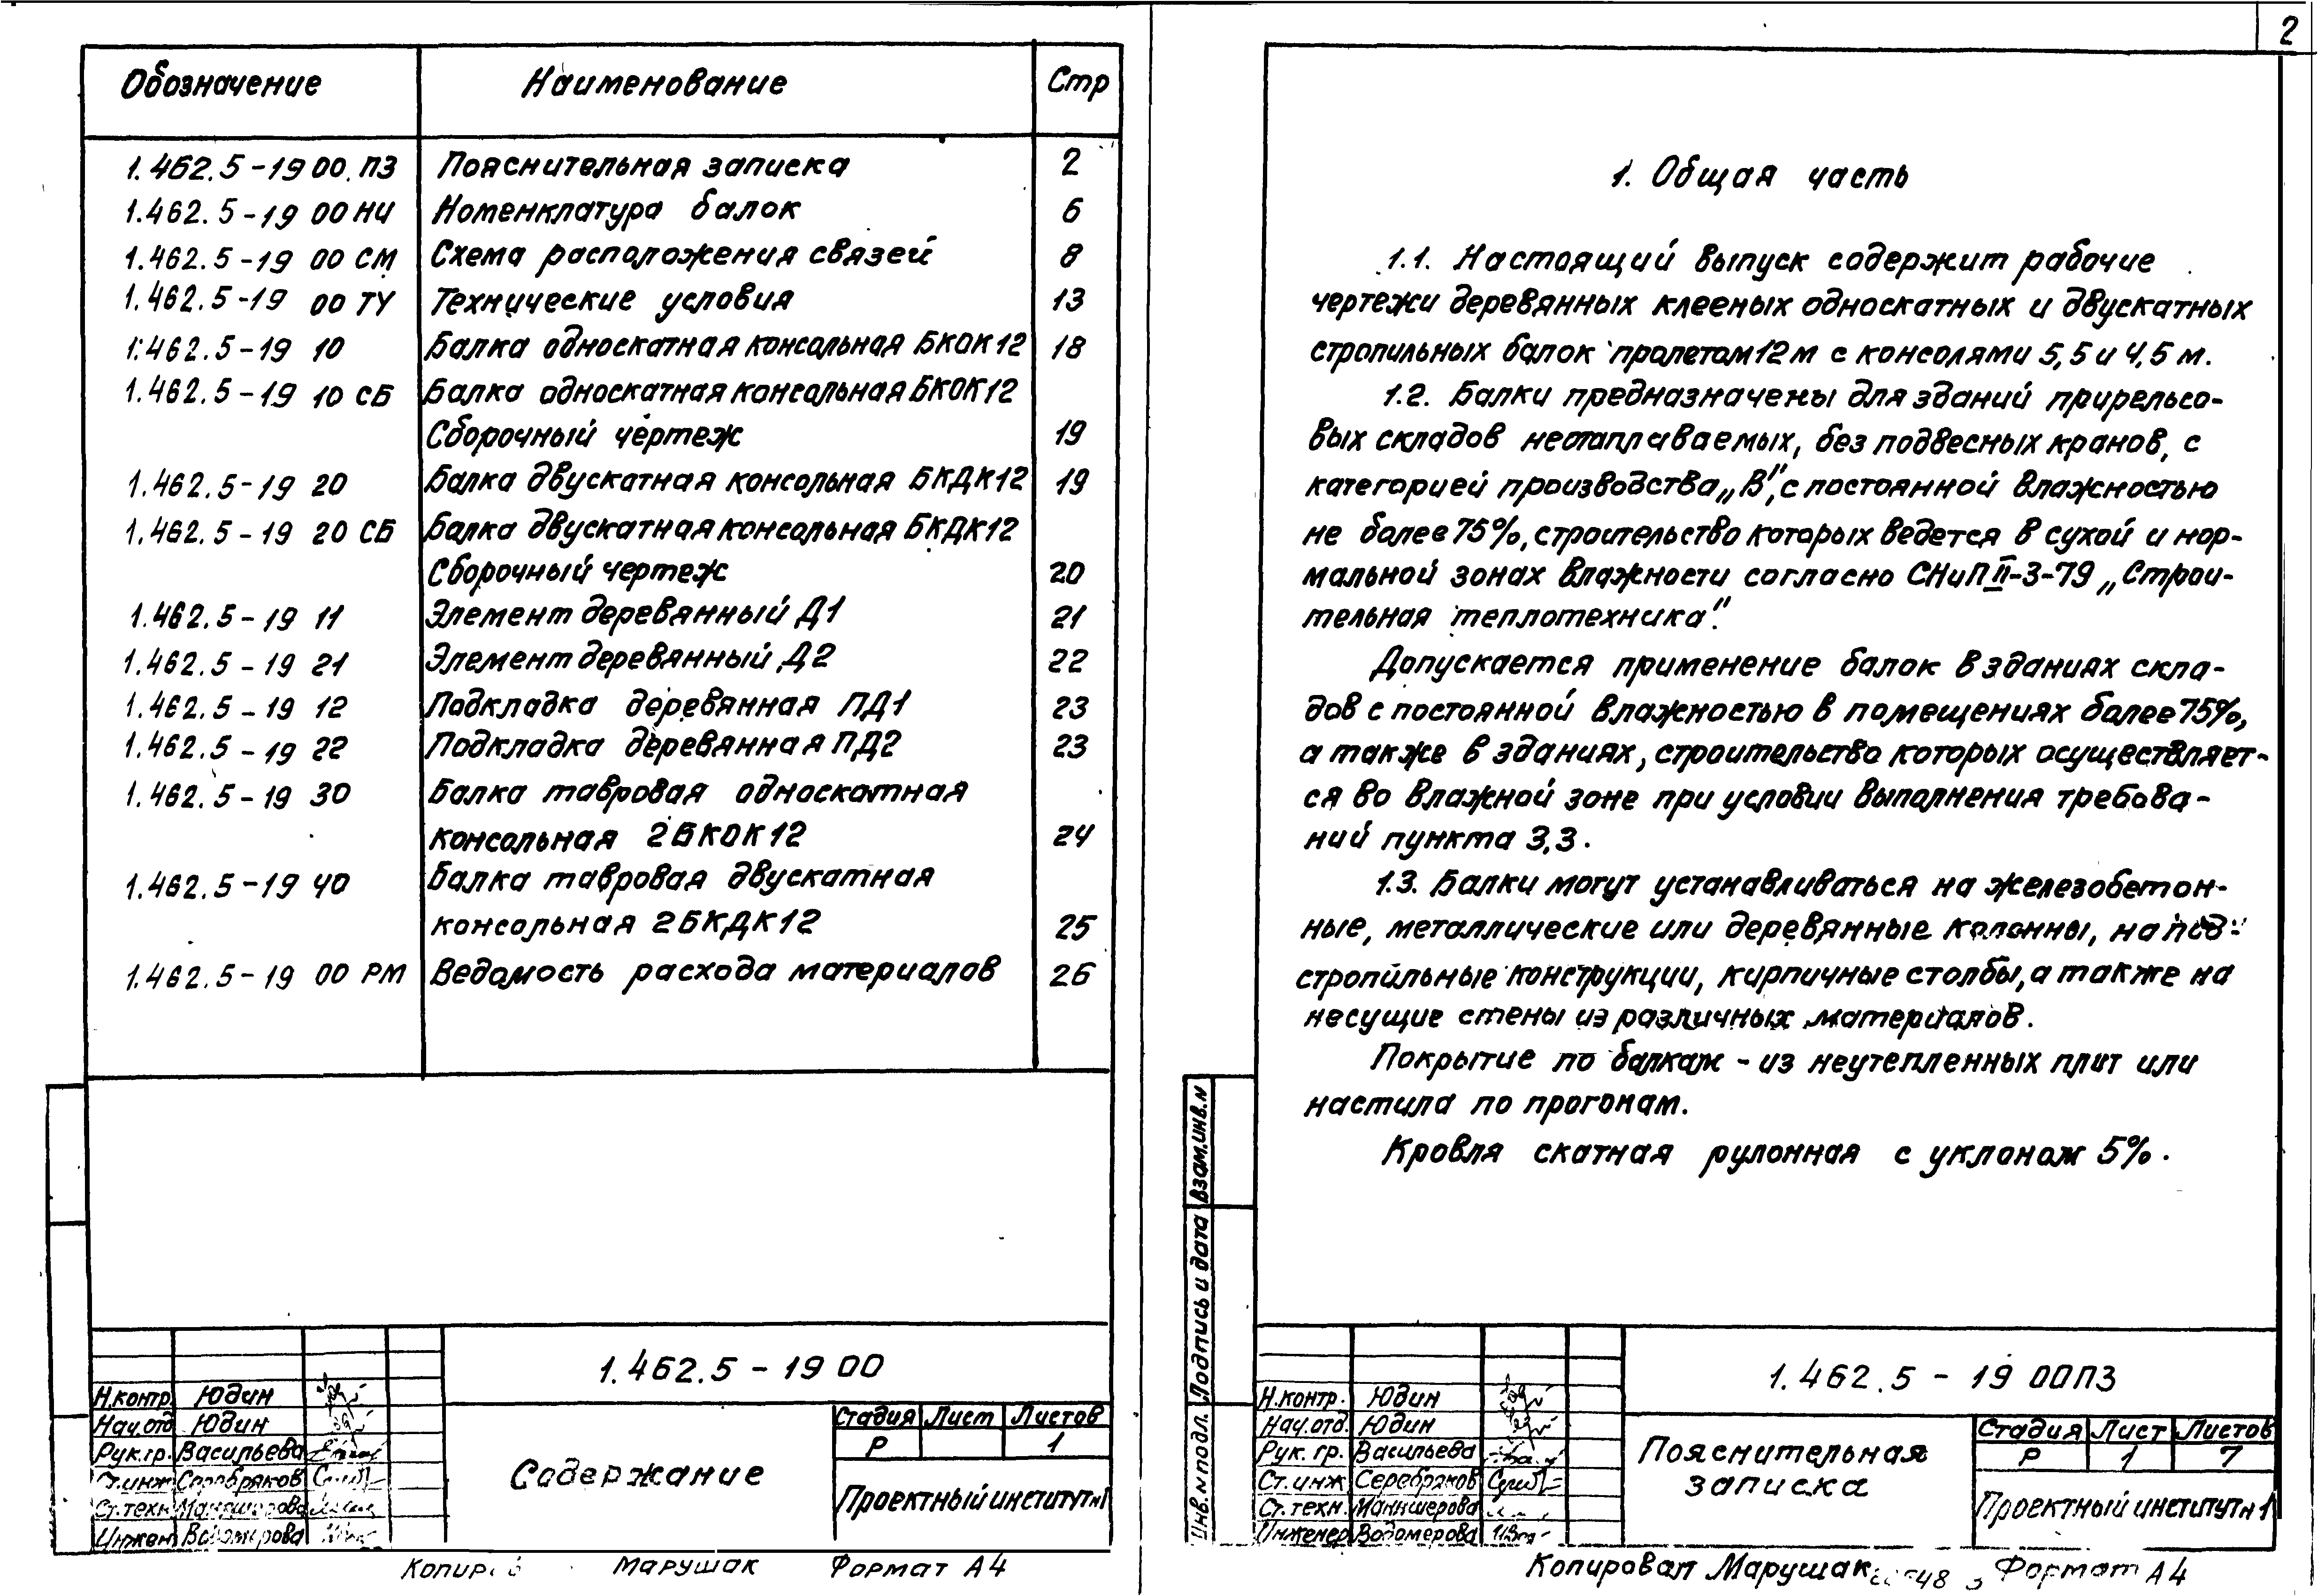 Обозначение Наименование Стр
1.462.5-19 00.ПЗ Пояснительная записка 2
1.462.5-19 00 НИ Номенклатура балок 6
1.462.5-19 00 СМ Схема расположения связей 8
1.462.5-19 00 ТУ Технические условия 13
1.462.5-19 10 Балка односкатная консольная БКОК12 18
1.462.5-19 10 СБ Балка односкатная консольная БКОК12
Сборочный чертеж 19
1.462.5-19 20 Балка двускатная консольная БКДК12 19
1.462.5-19 20 СБ Балка двускатная консольная БКДК12
Сборочный чертеж 20
1.462.5-19 11 Элемент деревянный Д1 21
1.462.5-19 21 Элемент деревянный Д2 22
1.462.5-19 12 Подкладка деревянная ПД1 23
1.462.5-19 22 Подкладка деревянная ПД2 23
1.462.5-19 30 Балка тавровая односкатная
консольная 2БКОК12 24
1.462.5-19 40 Балка тавровая двускатная
консольная 2БКДК12 25
1.462.5-19 00 РМ Ведомость расхода материалов 26
1.462.5-19 00
Н.контр. Юдин
Нач.отд Юдин
Рук.гр. Васильева
Ст.инж Серебряков
Ст.техн. Манншерова
Инжен Водомерова
Содержание
Стадия Лист Листов
Р 1
Проектный институт №1
Марушак Формат А4
2
1. Общая часть
1.1. Настоящий выпуск содержит рабочие
чертежи деревянных клееных односкатных и двускатных
стропильных балок пролетом 12 м с консолями 5,5 и 4,5 м.
1.2. Балки предназначены для зданий прирельсо-
вых складов неотапливаемых, без подвесных кранов, с
категорией производства „В", с постоянной влажностью
не более 75%, строительство которых ведется в сухой и нор-
мальной зонах влажности согласно СНиП II-3-79 „Строи-
тельная теплотехника".
Допускается применение балок в зданиях скла-
дов с постоянной влажностью в помещениях более 75%,
а также в зданиях, строительство которых осуществляет-
ся во влажной зоне при условии выполнения требова-
ний пункта 3.3.
1.3. Балки могут устанавливаться на железобетон-
ные, металлические или деревянные колонны, на под-
стропильные конструкции, кирпичные столбы, а также на
несущие стены из различных материалов.
Покрытие по балкам - из неутепленных плит или
настила по прогонам.
Кровля скатная рулонная с уклоном 5%.
Взам.инв.N
Подпись и дата
Инв.N подл.
1.462.5-19 00ПЗ
Н.контр. Юдин
Нач.отд. Юдин
Рук. гр. Васильева
Ст.инж Серебряков
Ст.техн. Манншерова
Инженер Водомерова
Пояснительная
записка
Стадия Лист Листов
Р 1 7
Проектный институт №1
Копировал Марушак Формат А4